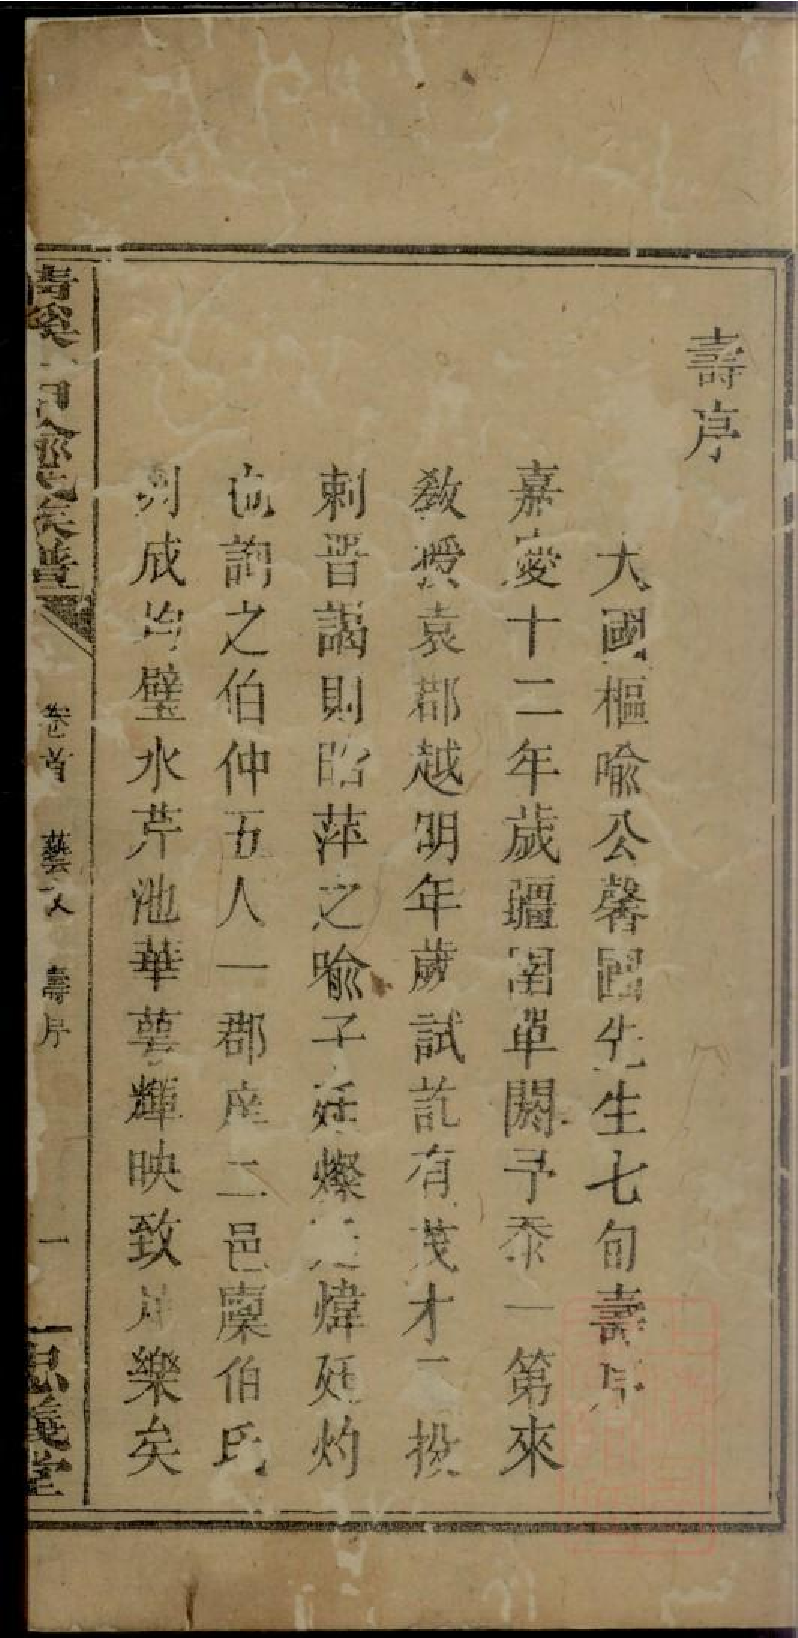 壽序
大國樞喻公馨國先生七旬壽序
嘉慶十二年歲疆圉單閼予忝一第來
教授袁郡越明年歲試訖有茂才二投
刺晋謁則昭萍之喻子廷燦廷煒廷灼
也詢之伯仲五人一郡庠二邑廩伯氏
列成均璧水芹池華萼輝映致足樂矣
清溪喻氏族譜
卷首 藝文 壽序 一
忠義堂